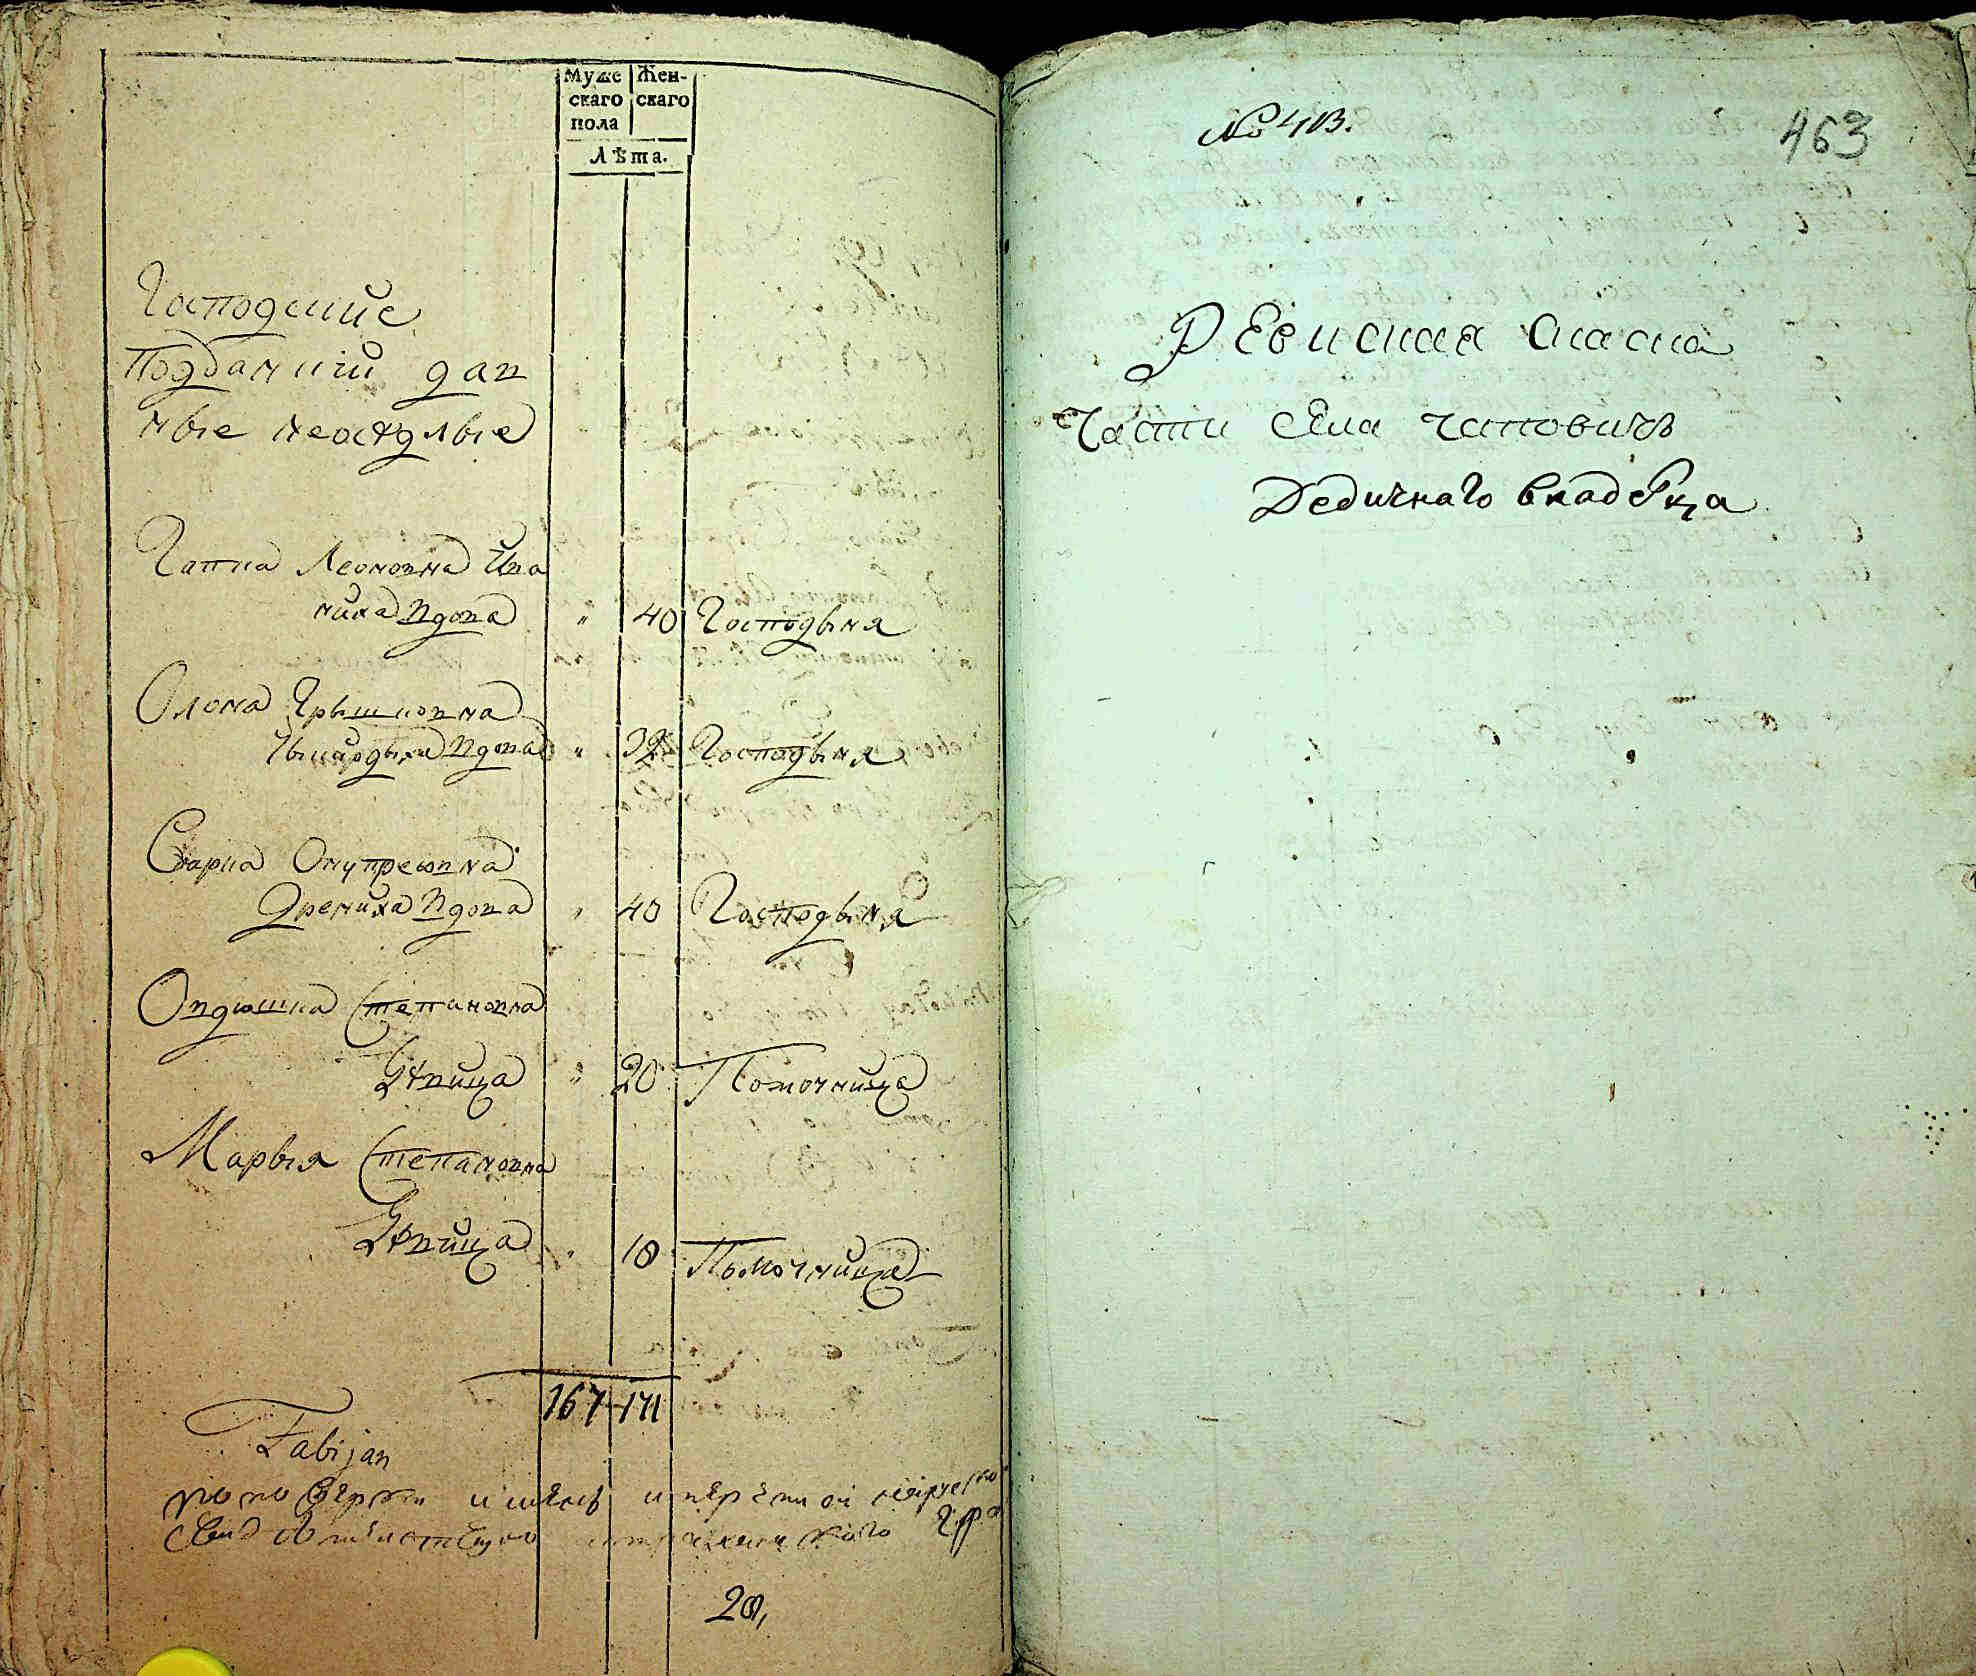 Муже
скаго
пола
Жен-
скаго
Лѣта.
Господские
подданнии дав
ные неоселые
Гапка Леоновна Ива
ниха вдова " 40 Господыня
Олена Грышковна
вдова " 32 Господыня
Варка Онупреювна
Яремиха вдова " 40 Господыня
Овдюшка Степановна
девица " 20 Помочница
Марыя Степановна
девица " 18 Помочница
167 171
Fabijan
28,
№ 413.
463
Ревиская сказка
Части села Чаповичъ
Дедичнаго владелца